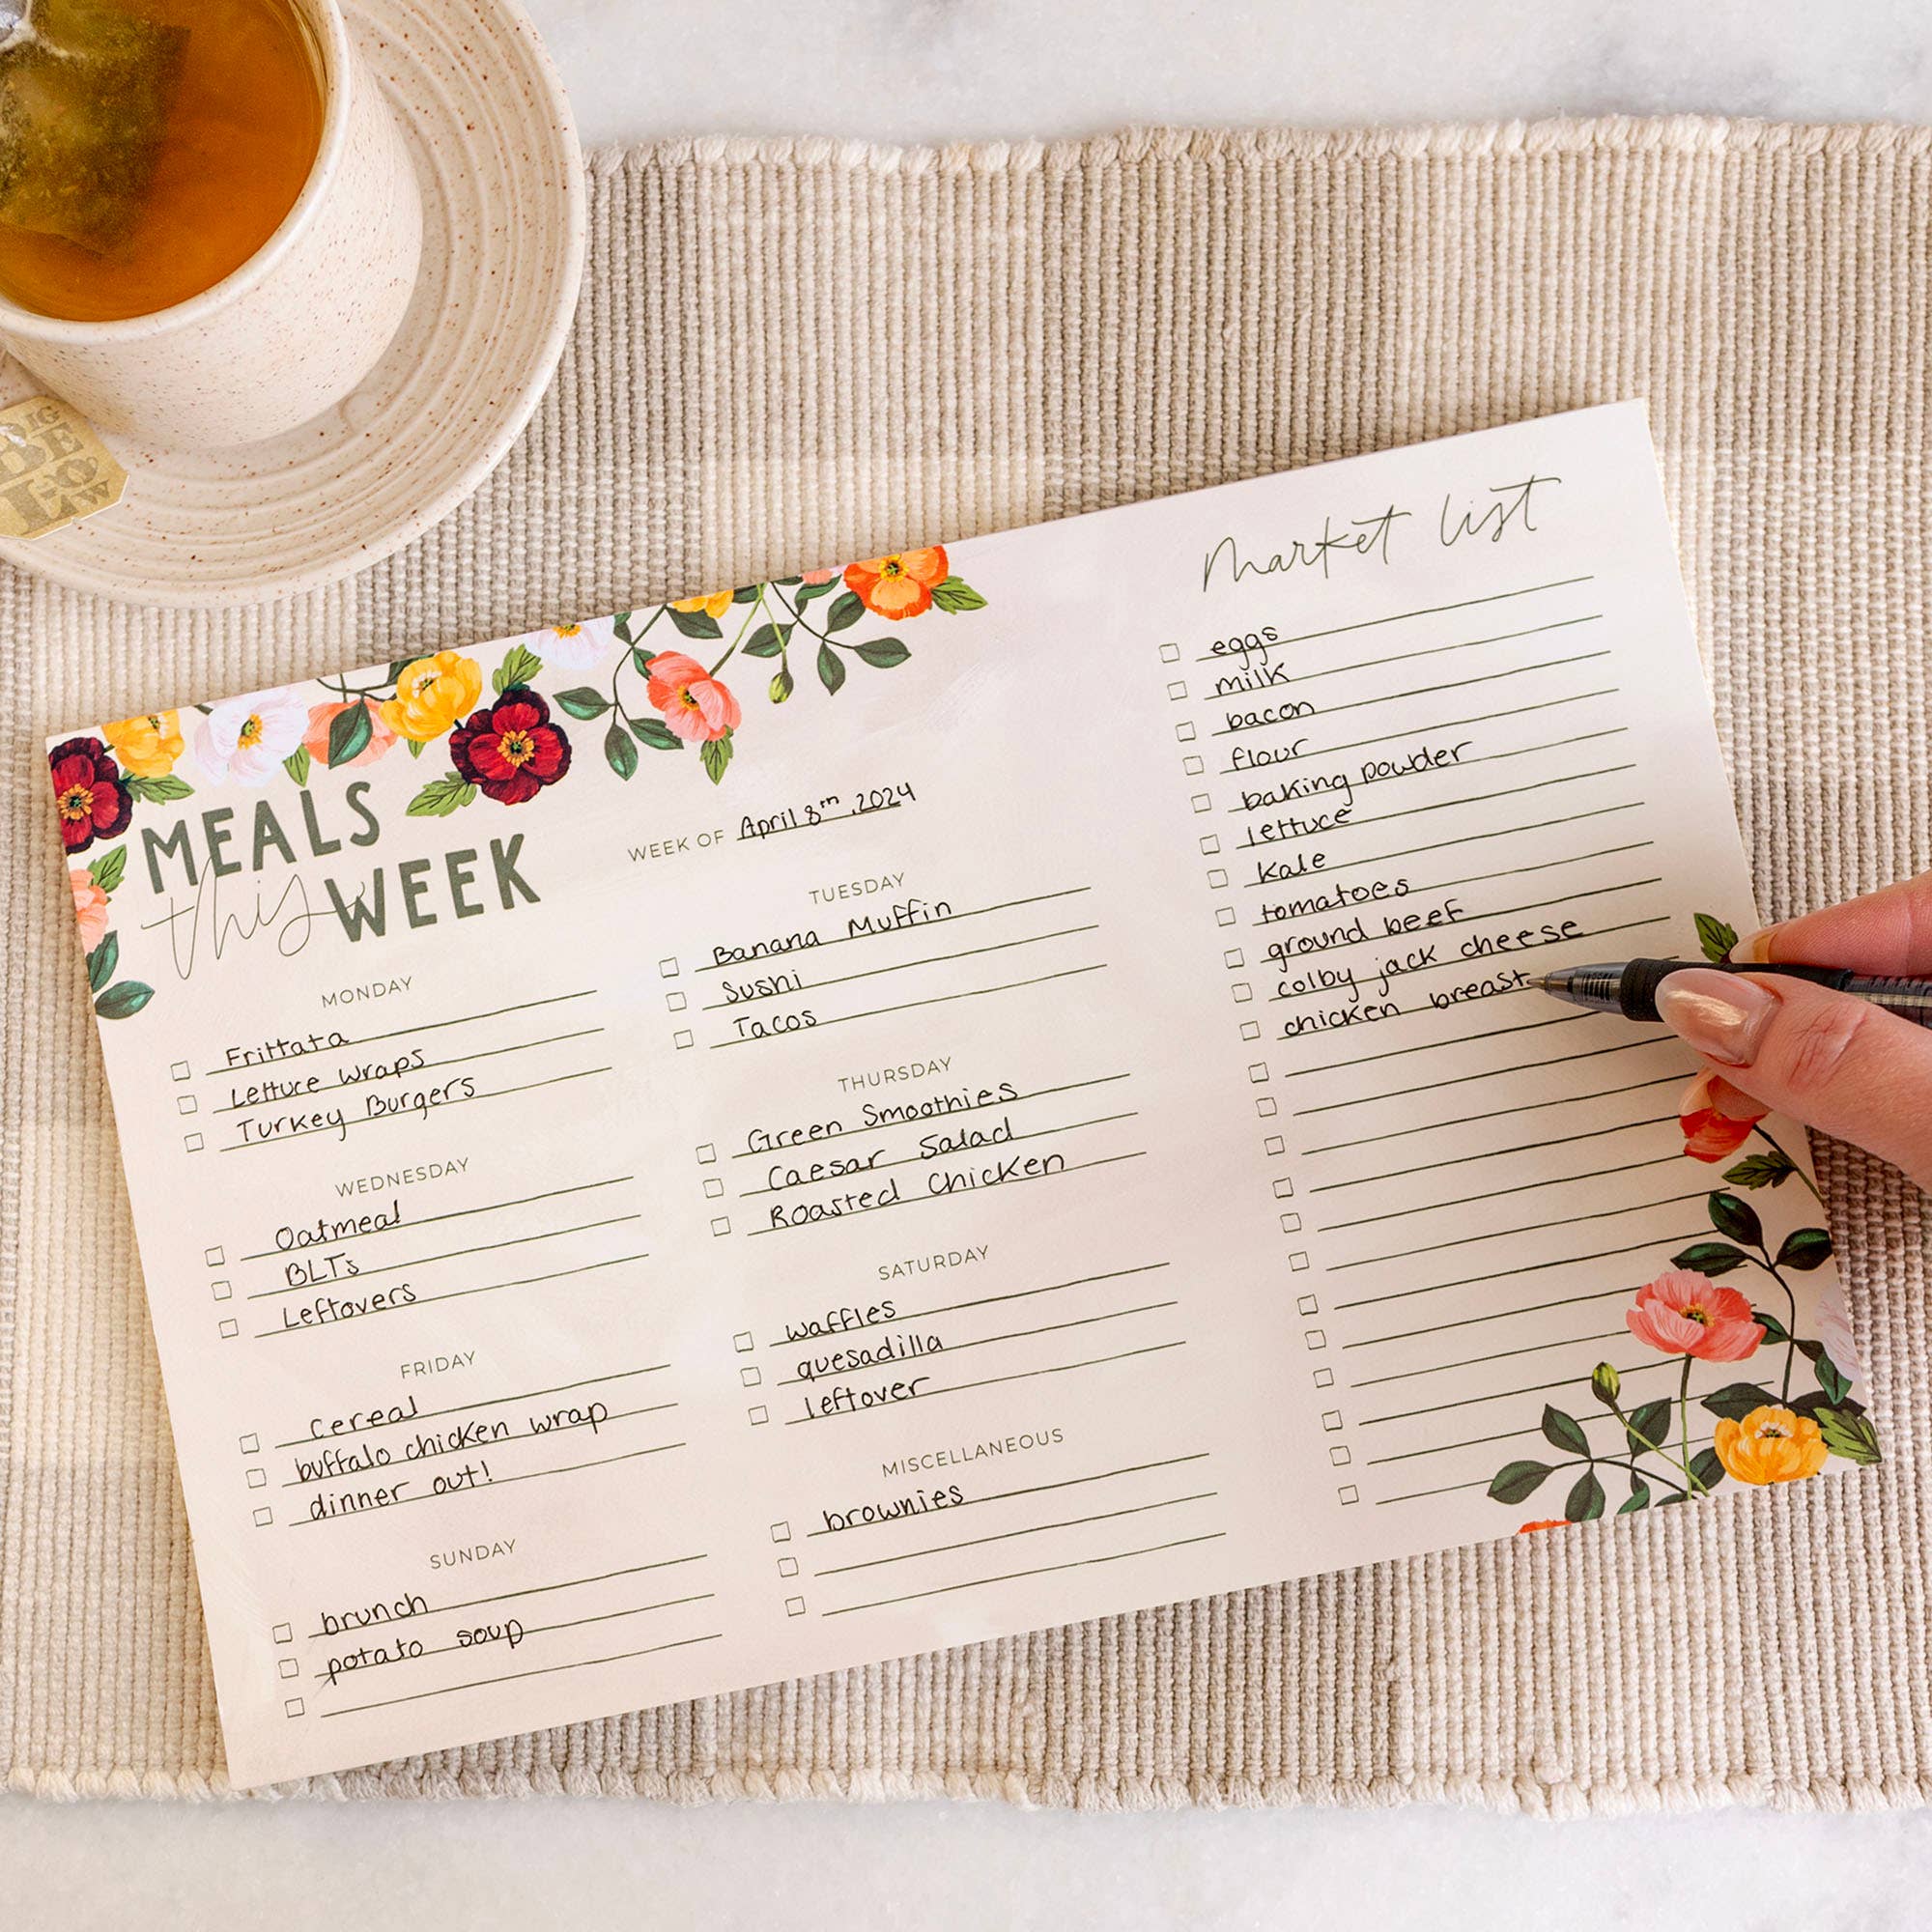 BIG
BE
LOW
MEALS
this WEEK
WEEK OF April 8th, 2024
MONDAY
Frittata
Lettuce Wraps
Turkey Burgers
TUESDAY
Banana Muffin
Sushi
Tacos
WEDNESDAY
Oatmeal
BLTs
Leftovers
THURSDAY
Green Smoothies
Caesar Salad
Roasted Chicken
FRIDAY
cereal
buffalo chicken wrap
dinner out!
SATURDAY
waffles
quesadilla
leftover
SUNDAY
brunch
potato soup
MISCELLANEOUS
brownies
market list
eggs
milk
bacon
flour
baking powder
lettuce
kale
tomatoes
ground beef
colby jack cheese
chicken breast